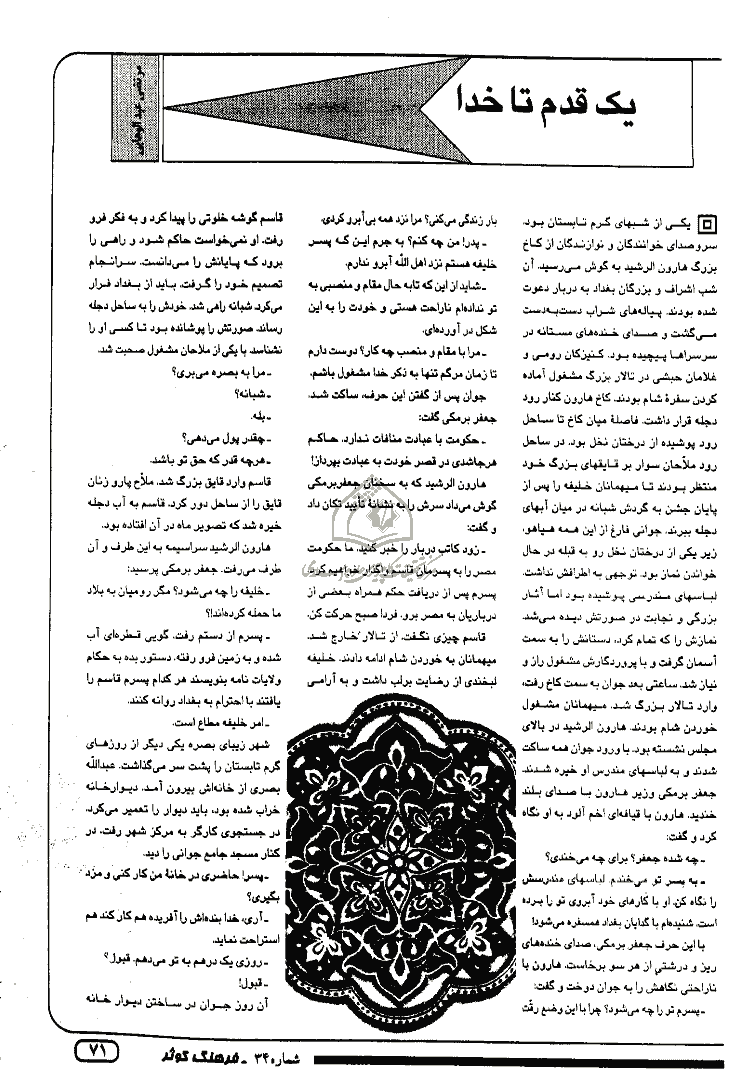 یک قدم تا خدا
مرتضی عبدالوهابی
یکی از شبهای گرم تابستان بود.
سروصدای خوانندگان و نوازندگان از کاخ
بزرگ هارون الرشید به گوش می‌رسید. آن
شب اشراف و بزرگان بغداد به دربار دعوت
شده بودند. پیاله‌های شراب دست‌به‌دست
می‌گشت و صدای خنده‌های مستانه در
سرسراها پیچیده بود. کنیزکان رومی و
غلامان حبشی در تالار بزرگ مشغول آماده
کردن سفرهٔ شام بودند. کاخ هارون کنار رود
دجله قرار داشت. فاصلهٔ میان کاخ تا ساحل
رود پوشیده از درختان نخل بود. در ساحل
رود ملاحان سوار بر قایقهای بزرگ خود
منتظر بودند تا میهمانان خلیفه را پس از
پایان جشن به گردش شبانه در میان آبهای
دجله ببرند. جوانی فارغ از این همه هیاهو،
زیر یکی از درختان نخل رو به قبله در حال
خواندن نماز بود. توجهی به اطرافش نداشت.
لباسهای مندرسی پوشیده بود اما آثار
بزرگی و نجابت در صورتش دیده می‌شد.
نمازش را که تمام کرد، دستانش را به سمت
آسمان گرفت و با پروردگارش مشغول راز و
نیاز شد. ساعتی بعد جوان به سمت کاخ رفت،
وارد تالار بزرگ شد. میهمانان مشغول
خوردن شام بودند. هارون الرشید در بالای
مجلس نشسته بود. با ورود جوان همه ساکت
شدند و به لباسهای مندرس او خیره شدند.
جعفر برمکی وزیر هارون با صدای بلند
خندید. هارون با قیافه‌ای اخم آلود به او نگاه
کرد و گفت:
ـ چه شده جعفر؟ برای چه می‌خندی؟
ـ به پسر تو می‌خندم. لباسهای مندرسش
را نگاه کن. او با کارهای خود آبروی تو را برده
است. شنیده‌ام با گدایان بغداد همسفره می‌شود!
با این حرف جعفر برمکی، صدای خنده‌های
ریز و درشتی از هر سو برخاست. هارون با
ناراحتی نگاهش را به جوان دوخت و گفت:
ـ پسرم تو را چه می‌شود؟ چرا با این وضع رقّت
بار زندگی می‌کنی؟ مرا نزد همه بی‌آبرو کردی.
ـ پدر! من چه کنم؟ به جرم این که پسر
خلیفه هستم نزد اهل اللّه آبرو ندارم.
ـ شاید از این که تابه حال مقام و منصبی به
تو نداده‌ام ناراحت هستی و خودت را به این
شکل در آورده‌ای.
ـ مرا با مقام و منصب چه کار؟ دوست دارم
تا زمان مرگم تنها به ذکر خدا مشغول باشم.
جوان پس از گفتن این حرف، ساکت شد.
جعفر برمکی گفت:
ـ حکومت با عبادت منافات ندارد. حاکم
هرجاشدی در قصر خودت به عبادت بپرداز!
هارون الرشید که به سخنان جعفربرمکی
گوش می‌داد سرش را به نشانهٔ تأیید تکان داد
و گفت:
ـ زود کاتب دربار را خبر کنید. ما حکومت
مصر را به پسرمان قاسم واگذار خواهیم کرد.
پسرم پس از دریافت حکم همراه بعضی از
درباریان به مصر برو. فردا صبح حرکت کن.
قاسم چیزی نگفت. از تالار خارج شد.
میهمانان به خوردن شام ادامه دادند. خلیفه
لبخندی از رضایت برلب داشت و به آرامی
قاسم گوشه خلوتی را پیدا کرد و به فکر فرو
رفت. او نمی‌خواست حاکم شود و راهی را
برود که پایانش را می‌دانست. سرانجام
تصمیم خود را گرفت. باید از بغداد فرار
می‌کرد. شبانه راهی شد. خودش را به ساحل دجله
رساند. صورتش را پوشانده بود تا کسی او را
نشناسد. با یکی از ملاحان مشغول صحبت شد.
ـ مرا به بصره می‌بری؟
ـ شبانه؟
ـ بله.
ـ چقدر پول می‌دهی؟
ـ هرچه قدر که حق تو باشد.
قاسم وارد قایق بزرگ شد. ملاّح پارو زنان
قایق را از ساحل دور کرد. قاسم به آب دجله
خیره شد که تصویر ماه در آن افتاده بود.
هارون الرشید سراسیمه به این طرف و آن
طرف می‌رفت. جعفر برمکی پرسید:
ـ خلیفه را چه می‌شود؟ مگر رومیان به بلاد
ما حمله کرده‌اند!؟
ـ پسرم از دستم رفت. گویی قطره‌ای آب
شده و به زمین فرو رفته. دستور بده به حکام
ولایات نامه بنویسند هر کدام پسرم قاسم را
یافتند با احترام به بغداد روانه کنند.
ـ امر خلیفه مطاع است.
شهر زیبای بصره یکی دیگر از روزهای
گرم تابستان را پشت سر می‌گذاشت. عبداللّه
بصری از خانه‌اش بیرون آمد. دیوارخانه
خراب شده بود، باید دیوار را تعمیر می‌کرد.
در جستجوی کارگر به مرکز شهر رفت. در
کنار مسجد جامع جوانی را دید.
ـ پسر! حاضری در خانهٔ من کار کنی و مزد
بگیری؟
ـ آری، خدا بنده‌اش را آفریده هم کار کند هم
استراحت نماید.
ـ روزی یک درهم به تو می‌دهم. قبول؟
ـ قبول!
آن روز جوان در ساختن دیوار خانه
شماره ۳۴ ـ فرهنگ کوثر
۷۱